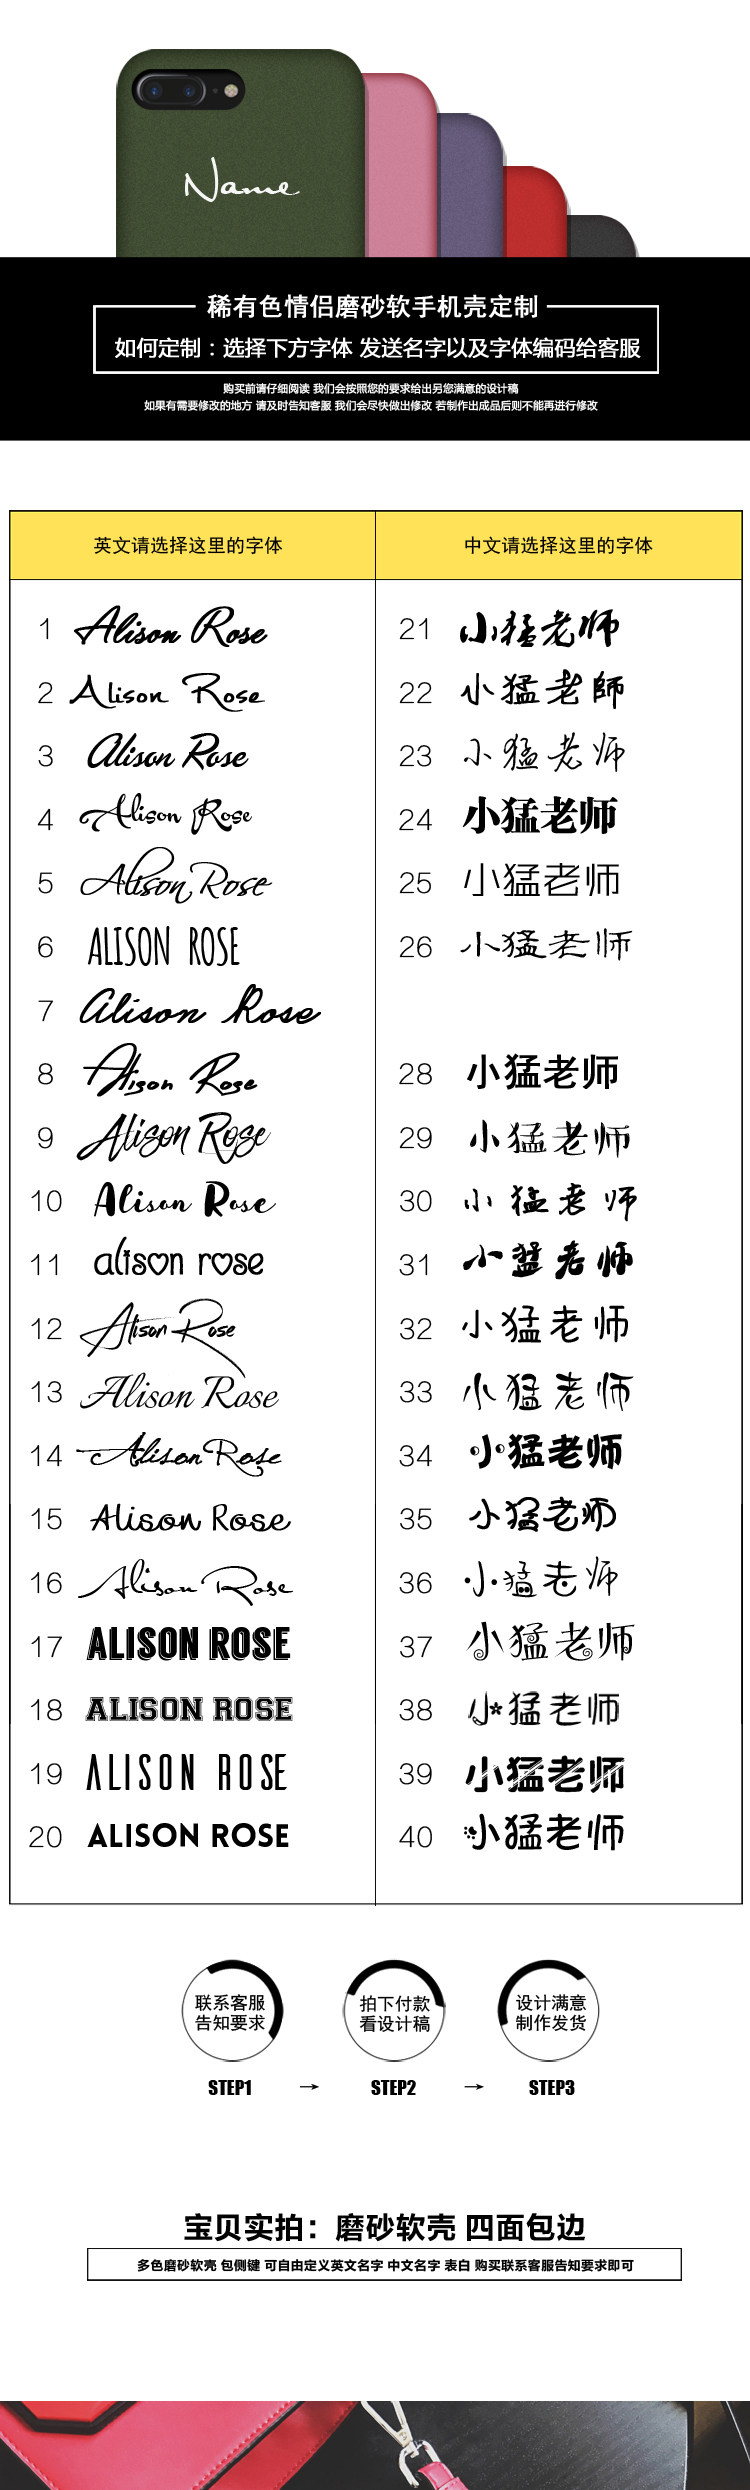 Name
稀有色情侣磨砂软手机壳定制
如何定制：选择下方字体 发送名字以及字体编码给客服
购买前请仔细阅读 我们会按照您的要求给出另您满意的设计稿
如果有需要修改的地方 请及时告知客服 我们会尽快做出修改 若制作出成品后则不能再进行修改
英文请选择这里的字体 中文请选择这里的字体
1 Alison Rose 21 小猛老师
2 Alison Rose 22 小猛老師
3 Alison Rose 23 小猛老师
4 Alison Rose 24 小猛老师
5 Alison Rose 25 小猛老师
6 ALISON ROSE 26 小猛老师
7 Alison Rose
8 Alison Rose 28 小猛老师
9 Alison Rose 29 小猛老师
10 Alison Rose 30 小猛老师
11 alison rose 31 小猛老师
12 Alison Rose 32 小猛老师
13 Alison Rose 33 小猛老师
14 Alison Rose 34 小猛老师
15 Alison Rose 35 小猛老师
16 Alison Rose 36 小猛老师
17 ALISON ROSE 37 小猛老师
18 ALISON ROSE 38 小猛老师
19 ALISON ROSE 39 小猛老师
20 ALISON ROSE 40 小猛老师
联系客服 拍下付款 设计满意
告知要求 看设计稿 制作发货
STEP1 → STEP2 → STEP3
宝贝实拍：磨砂软壳 四面包边
多色磨砂软壳 包侧键 可自由定义英文名字 中文名字 表白 购买联系客服告知要求即可